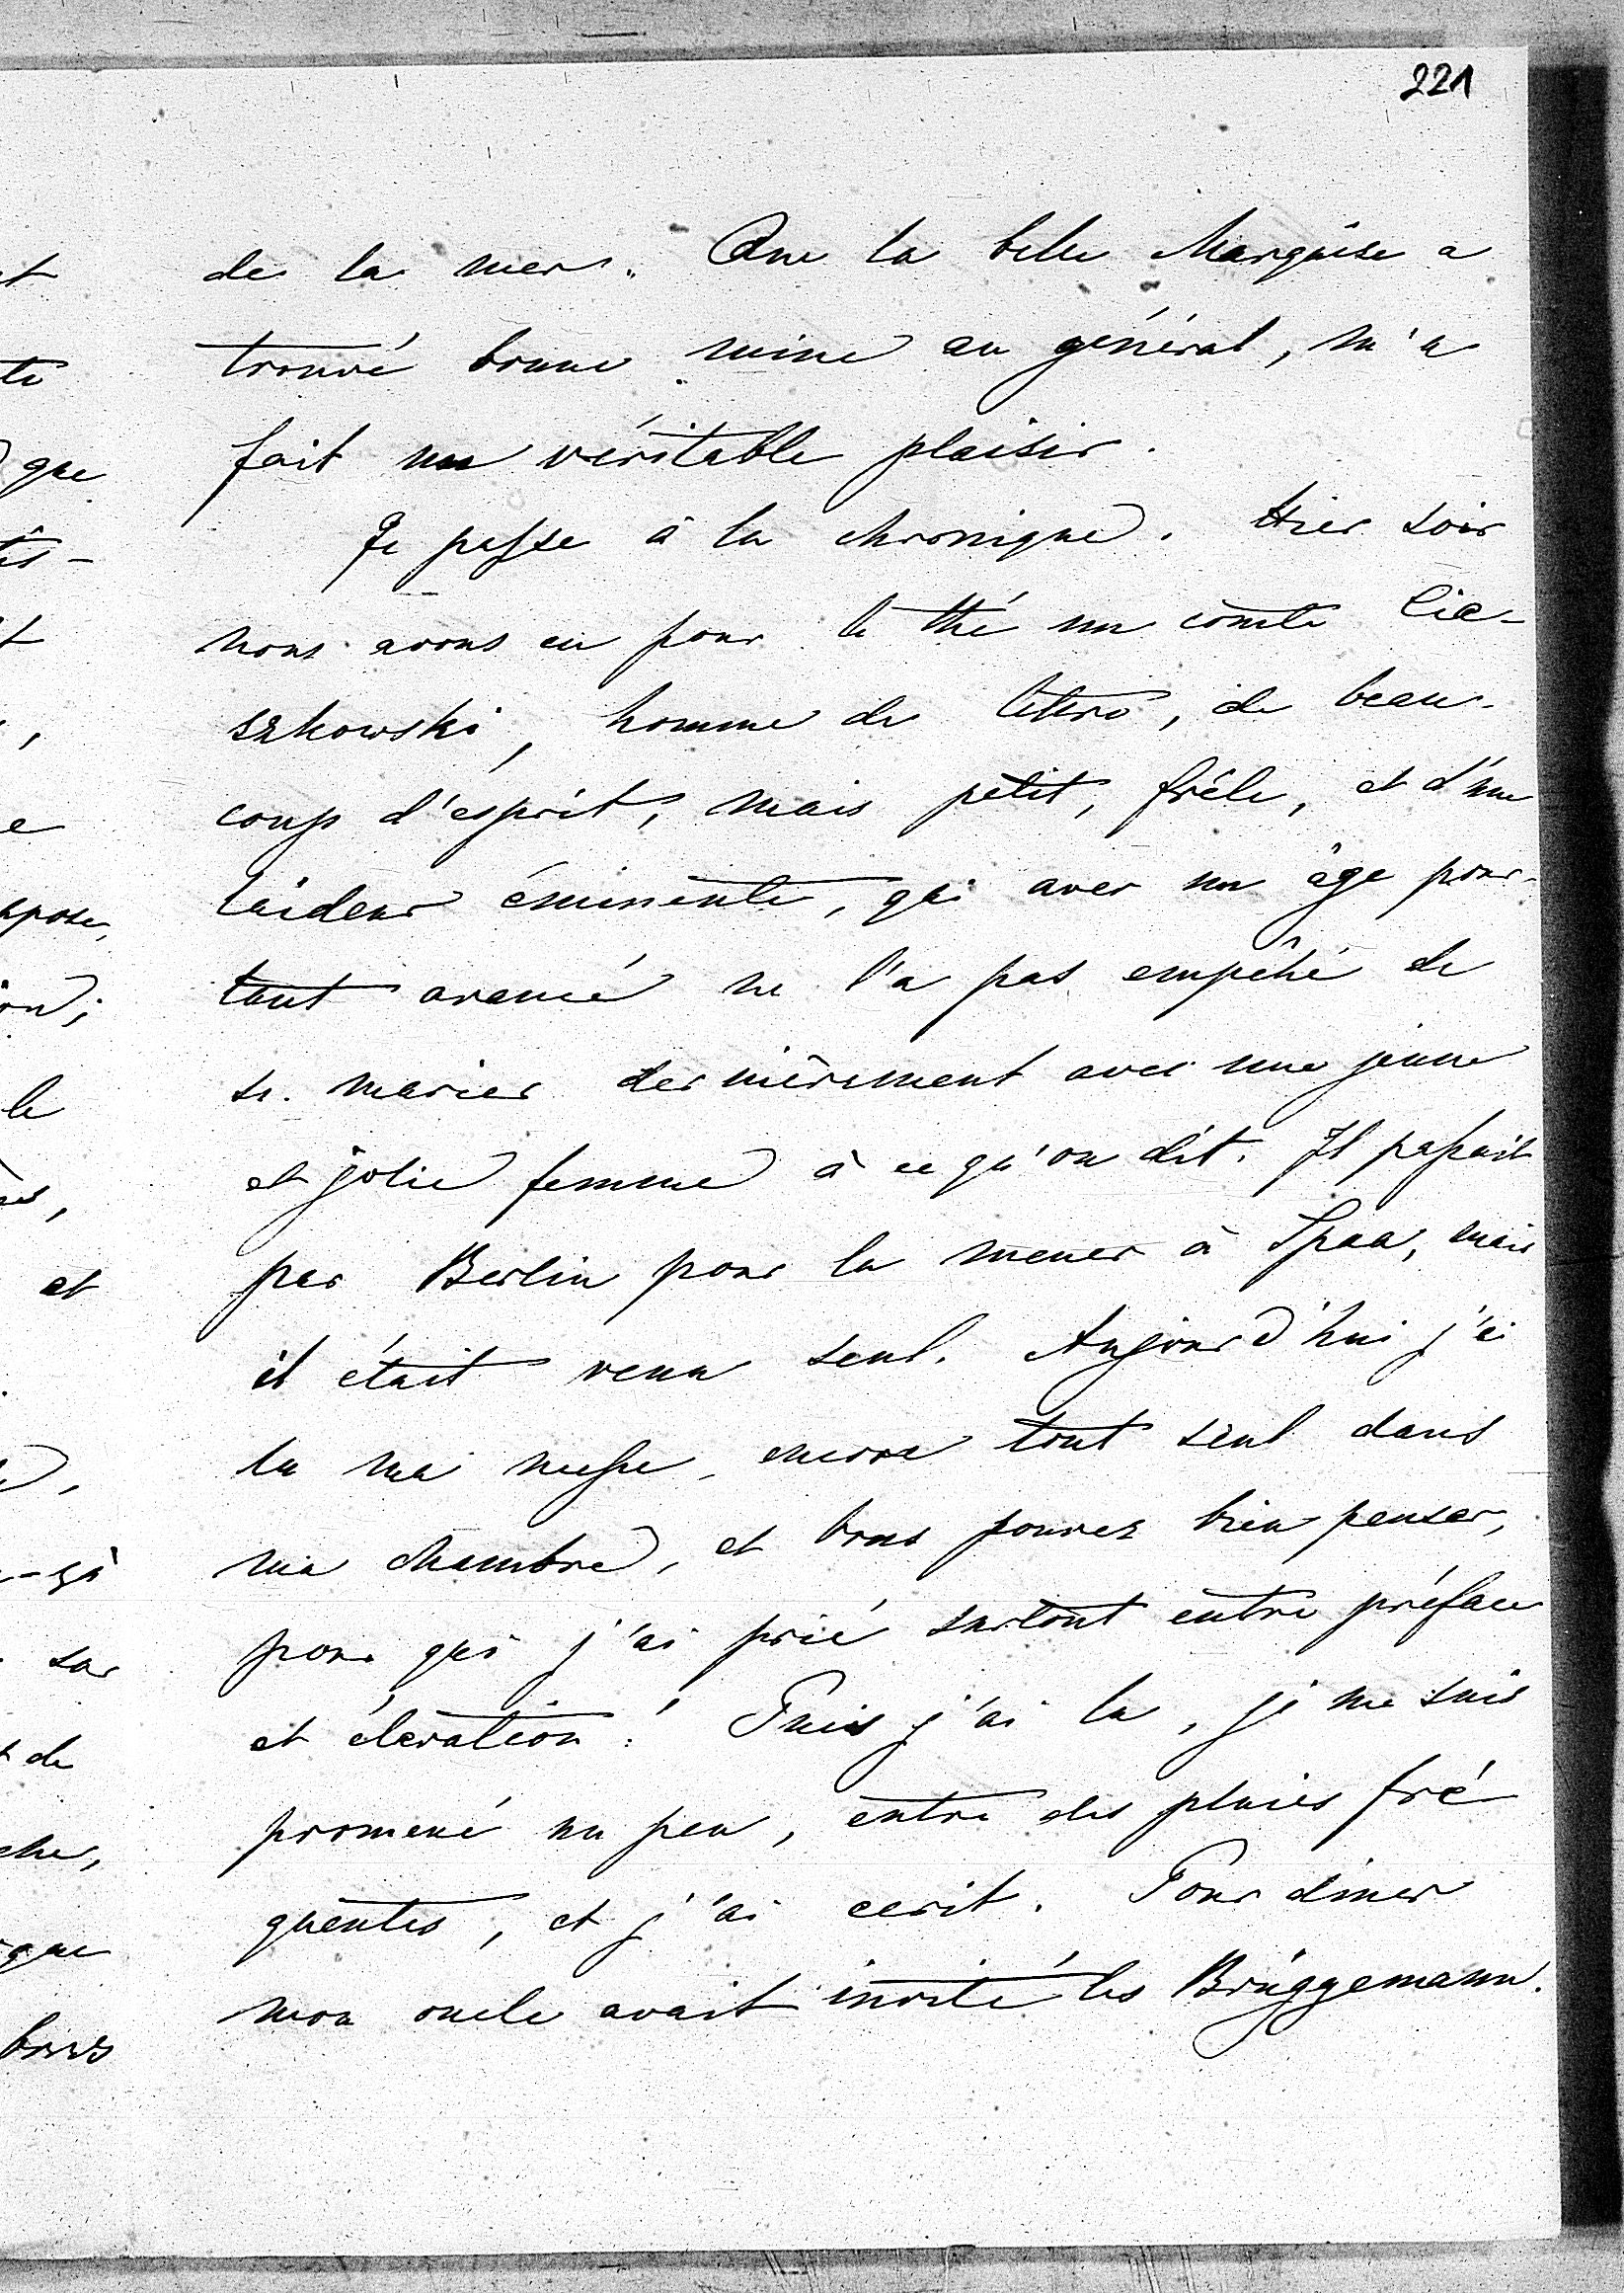 221
de la mer. Que la belle Marquise a
trouvé bonne mine au général, m'a
fait un véritable plaisir.
Je passe à la chronique. Hier soir
nous avons eu pour le thé un comte Cie-
szkowski, homme de lettres, de beau-
coup d'esprit, mais petit, frêle, et d'une
laideur éminente, qui avec un âge pour-
tant avancé ne l'a pas empêché de
se marier dernièrement avec une jeune
et jolie femme à ce qu'on dit. Il passait
par Berlin pour la mener à Spaa, mais
il était venu seul. Aujourd'hui j'ai
lu ma messe, encore tout seul dans
ma chambre, et vous pouvez bien penser,
pour qui j'ai prié surtout entre préface
et élévation! Puis j'ai lu, je me suis
promené un peu, entre des pluies fré
quentes, et j'ai ecrit. Pour diner
mon oncle avait invité les Brüggemann.